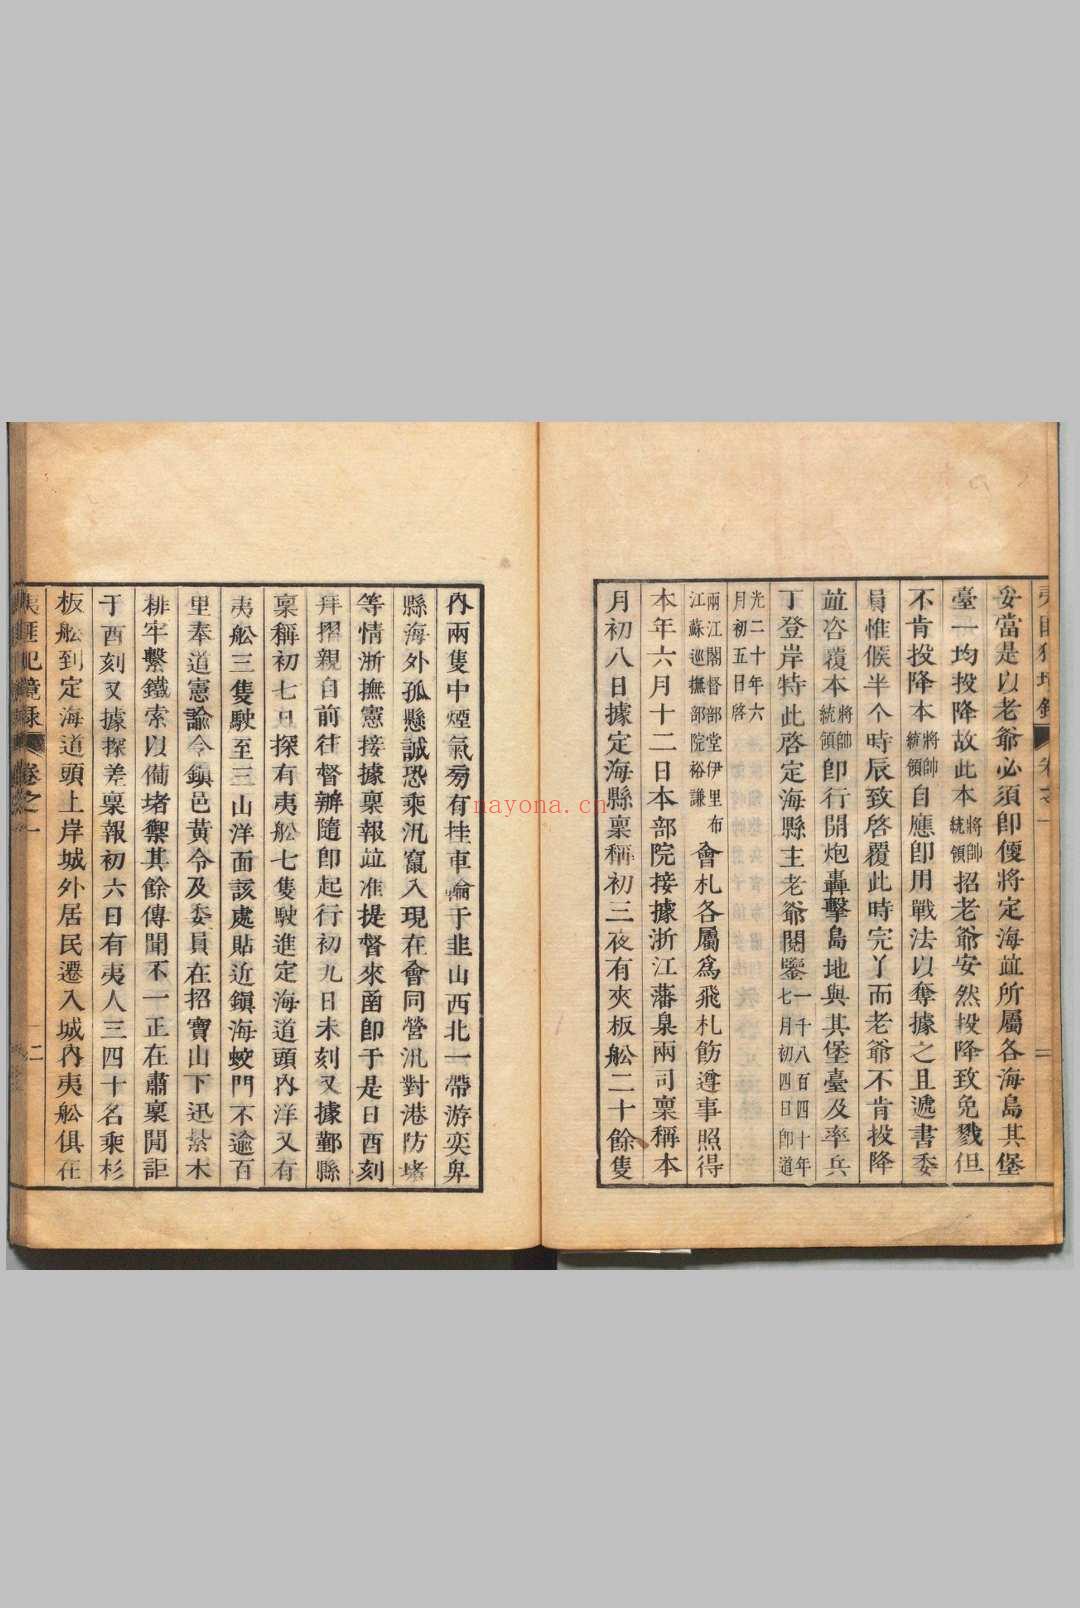 妥當是以老爺必須卽便將定海並所屬各海島其堡
臺一均投降故此本將帥統領招老爺安然投降致免戮但
不肯投降本將帥統領自應卽用戰法以奪據之且遞書委
員惟候半个時辰致啓覆此時完了而老爺不肯投降
並咨覆本將帥統領卽行開炮轟擊島地與其堡臺及率兵
丁登岸特此啓定海縣主老爺閱鑒一千八百四十年七月初四日卽道
光二十年六月初五日啓
兩江閣督部堂伊里布江蘇巡撫部院裕謙會札各屬爲飛札飭遵事照得
本年六月十二日本部院接據浙江藩臬兩司稟稱本
月初八日據定海縣稟稱初三夜有夾板船二十餘隻
內兩隻中煙氣旁有挂車輪于韭山西北一帶游奕卑
縣海外孤懸誠恐乘汛竄入現在會同營汛對港防堵
等情浙撫憲接據稟報並准提督來函卽于是日酉刻
拜摺親自前往督辦隨卽起行初九日未刻又據鄞縣
稟稱初七日探有夷船七隻駛進定海道頭內洋又有
夷船三隻駛至三山洋面該處貼近鎭海蛟門不逾百
里奉道憲諭令鎭邑黃令及委員在招寶山下迅紮木
排牢繫鐵索以備堵禦其餘傳聞不一正在肅稟聞詎
于酉刻又據探差稟報初六日有夷人三四十名乘杉
板船到定海道頭上岸城外居民遷入城內夷船俱在
夷匪犯境錄 卷之一 二
nayona.cn